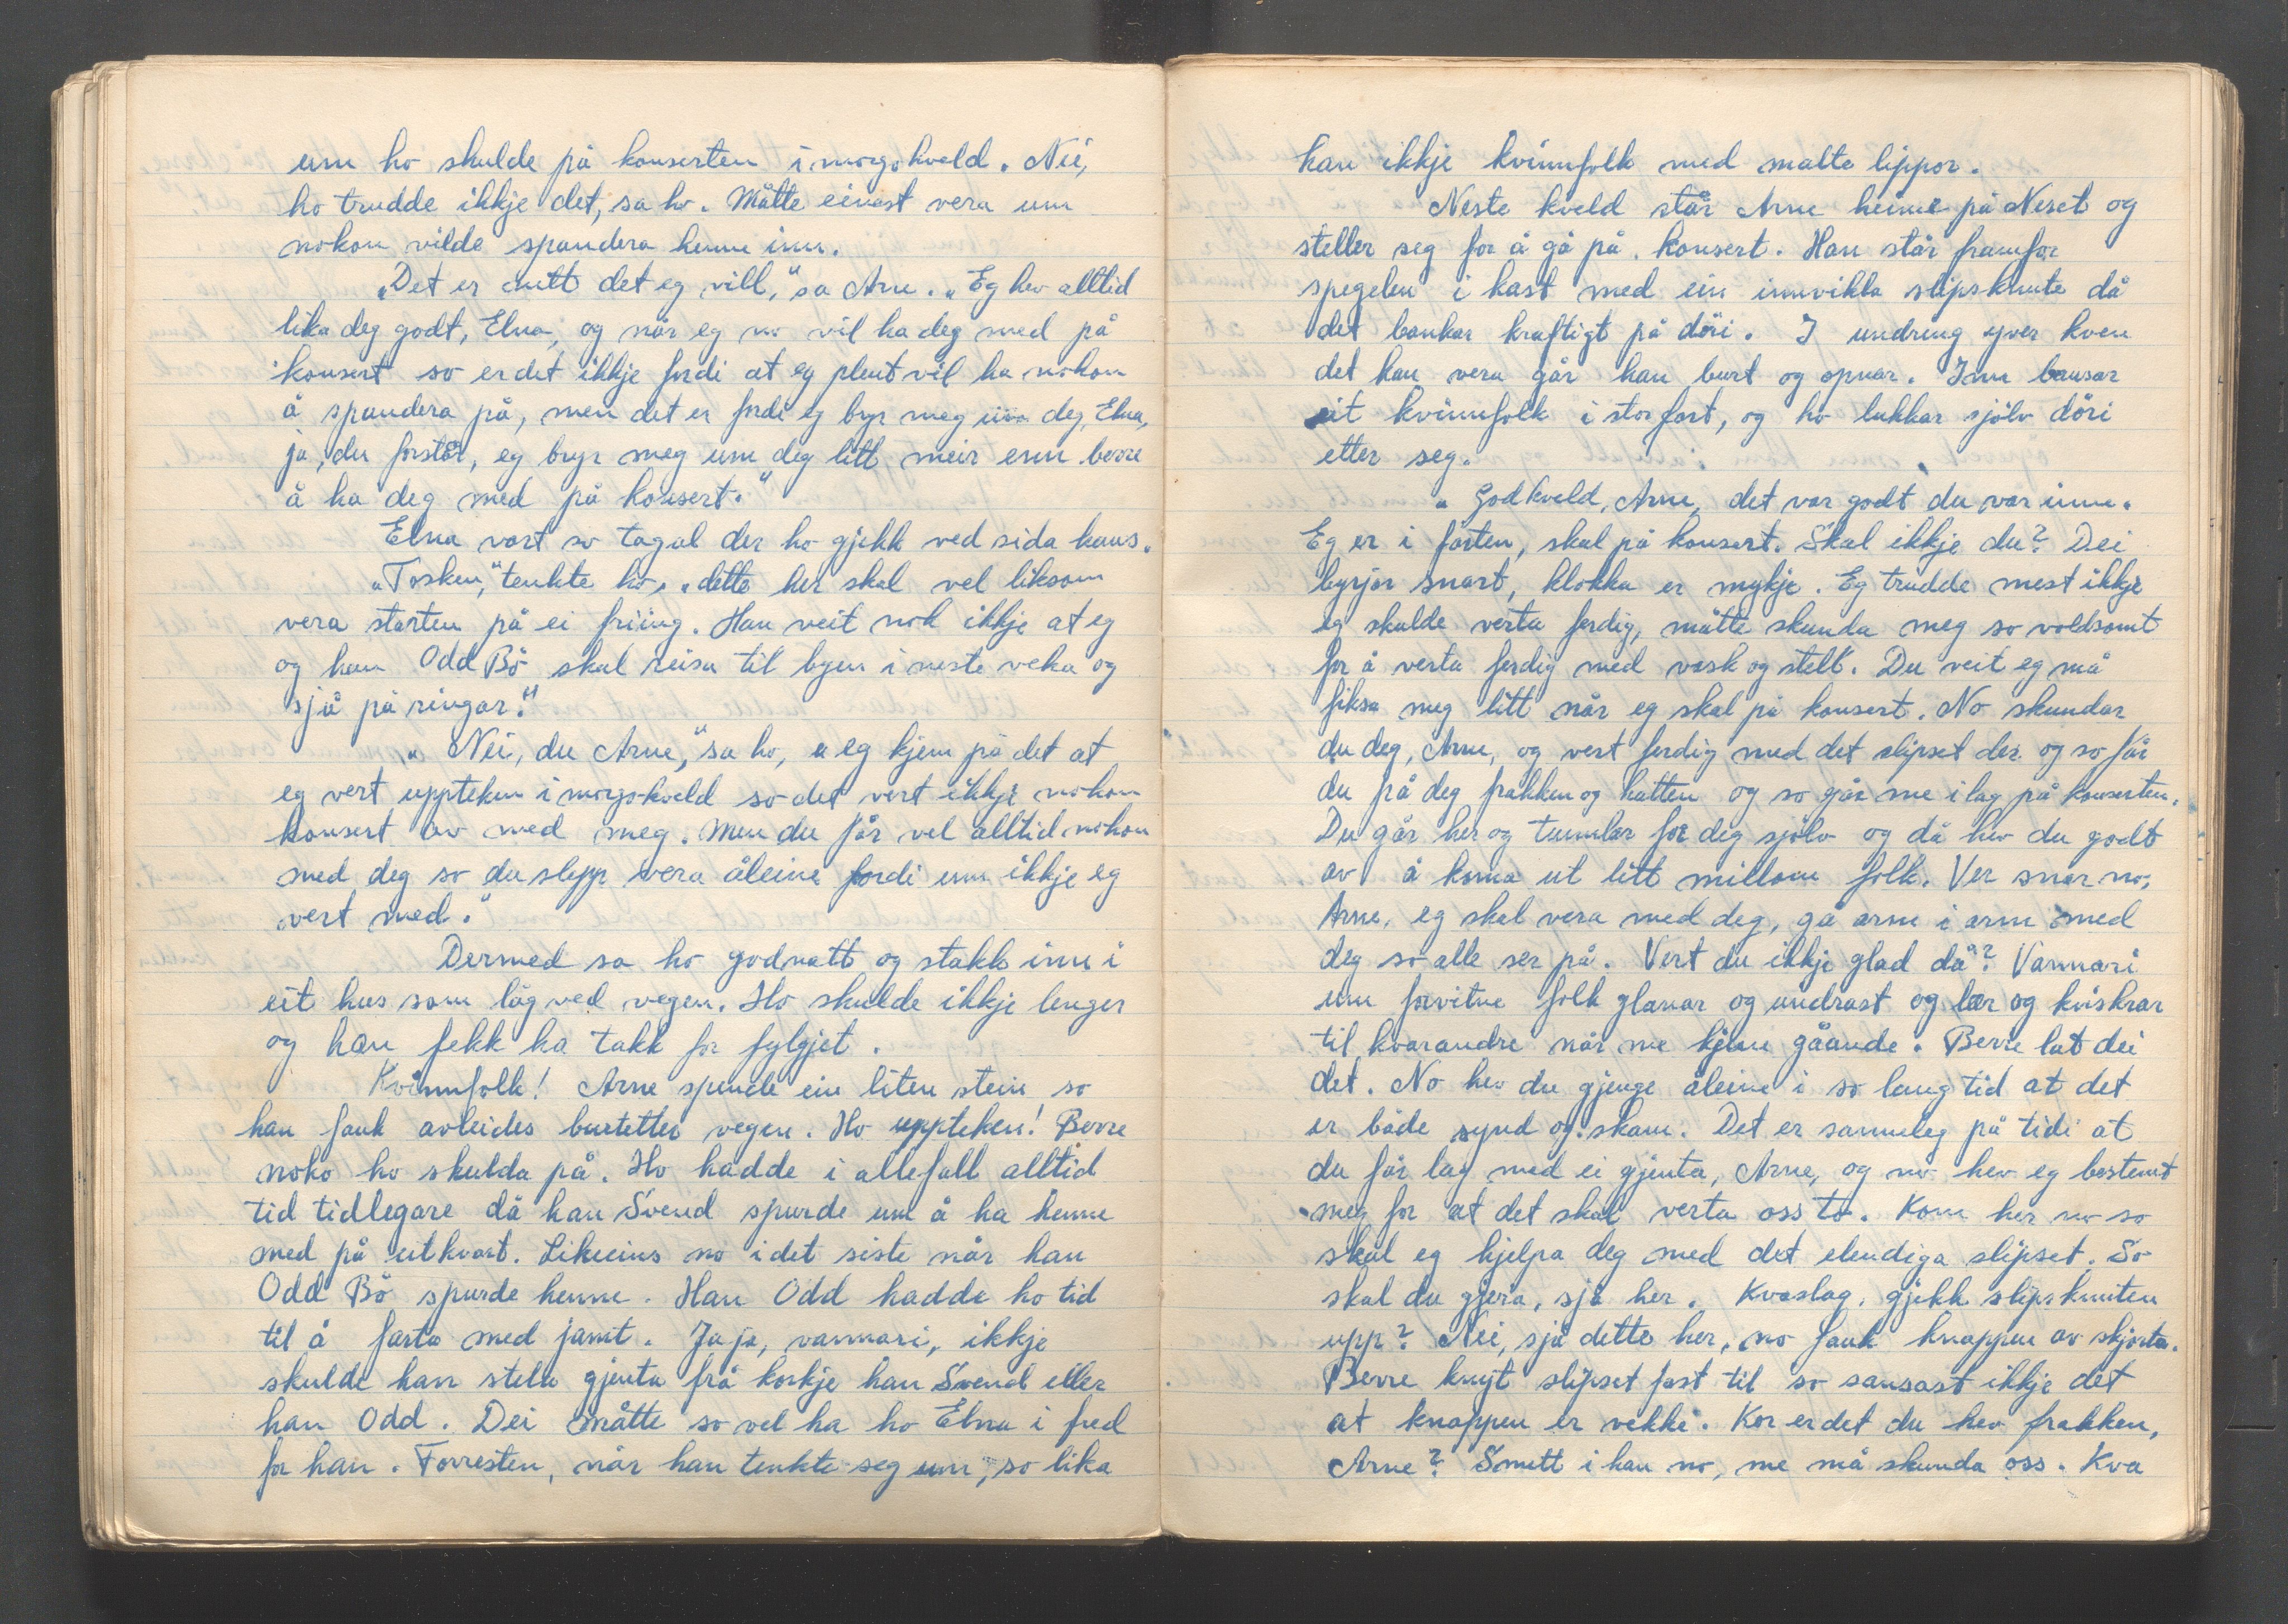 um ho skulde på konserten i morgokveld. Nei,
ho trudde ikkje det, sa ho. Måtte einast vera um
nokon vilde spandera henne inn.
„Det er nett det eg vill," sa Arne. „Eg hev alltid
lika deg godt, Elna, og når eg no vil ha deg med på
konsert so er det ikkje fordi at eg plent vil ha nokon
å spandera på, men det er fordi eg bryr meg um deg, Elna,
ja, du forstår, eg bryr meg um deg litt meir enn berre
å ha deg med på konsert."
Elna vart so tagal der ho gjekk ved sida hans.
„Tosken," tenkte ho, „dette her skal vel liksom
vera starten på ei friing. Han veit nok ikkje at eg
og han Odd Bö skal reisa til byen i neste veka og
sjå på ringar."
„Nei, du Arne," sa ho, „eg kjem på det at
eg vert uppteken i morgokveld so det vert ikkje nokon
konsert av med meg. Men du får vel alltid nokon
med deg so du slepp vera åleine fordi um ikkje eg
vert med."
Dermed sa ho godnatt og stakk inn i
eit hus som låg ved vegen. Ho skulde ikkje lenger
og han fekk ha takk for fylgjet.
Kvinnfolk! Arne spende ein liten stein so
han fauk avleides burtetter vegen. Ho uppteken! Berre
noko ho skulda på. Ho hadde i allefall alltid
tid tidlegare då han Svend spurde um å ha henne
med på eitkvart. Likeeins no i det siste når han
Odd Bö spurde henne. Han Odd hadde ho tid
til å farta med jamt. Ja ja, vanmari, ikkje
skulde han stela gjenta frå korkje han Svend eller
han Odd. Dei måtte so vel ha ho Elna i fred
for han. Forresten, når han tenkte seg um, so lika
han ikkje kvinnfolk med malte lippor.
Neste kveld står Arne heime på Neset og
steller seg for å gå på konsert. Han står framfor
spegelen i kast med ein innvikla slipsknute då
det bankar kraftigt på döri. I undring yver kven
det kan vera går han burt og opnar. Inn bausar
eit kvinnfolk i stor fart, og ho lukkar sjölv döri
etter seg.
„God kveld, Arne, det var godt du var inne.
Eg er i farten, skal på konsert. Skal ikkje du? Dei
byrjar snart, klokka er mykje. Eg trudde mest ikkje
eg skulde verta ferdig, måtte skunda meg so voldsomt
for å verta ferdig med vask og stell. Du veit eg må
fiksa meg litt når eg skal på konsert. No skundar
du deg, Arne, og vert ferdig med det slipset der og so får
du på deg frakken og hatten og so går me i lag på konserten.
Du går her og tumlar for deg sjölv og då hev du godt
av å koma ut litt millom folk. Ver snar no,
Arne, eg skal vera med deg, gå arm i arm med
deg so alle ser på. Vert du ikkje glad då? Vanmari
um forvitne folk glanar og undrast og lær og kviskrar
til kvarandre når me kjem gåande. Berre lat dei
det. No hev du gjenge åleine i so lang tid at det
er både synd og skam. Det er sanneleg på tidi at
du får lag med ei gjenta, Arne, og no hev eg bestemt
meg for at det skal verta oss to. Kom her no so
skal eg hjelpa deg med det elendiga slipset. So
skal du gjera, sjå her. Kvaslag, gjekk slipsknuten
upp? Nei, sjå dette her, no fauk knappen av skjorta.
Berre knyt slipset fast til so sansast ikkje det
at knappen er vekke. Kor er det du hev frakken,
Arne? Smett i han no, me må skunda oss. Kva